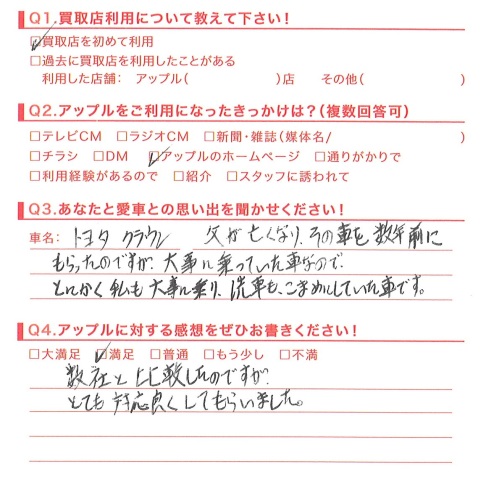 Q1.買取店利用について教えて下さい!
☑買取店を初めて利用
□過去に買取店を利用したことがある
利用した店舗: アップル( )店 その他( )
Q2.アップルをご利用になったきっかけは?(複数回答可)
□テレビCM □ラジオCM □新聞・雑誌(媒体名/ )
□チラシ □DM ☑アップルのホームページ □通りがかりで
□利用経験があるので □紹介 □スタッフに誘われて
Q3.あなたと愛車との思い出を聞かせてください!
車名: トヨタ クラウン 父が亡くなり、その車を数年前に
もらったのですが、大事に乗っていた車なので、
とにかく私も大事に乗り、洗車も、こまめにしていた車です。
Q4.アップルに対する感想をぜひお書きください!
□大満足 ☑満足 □普通 □もう少し □不満
数社と比較したのですが、
とても対応良くしてもらいました。